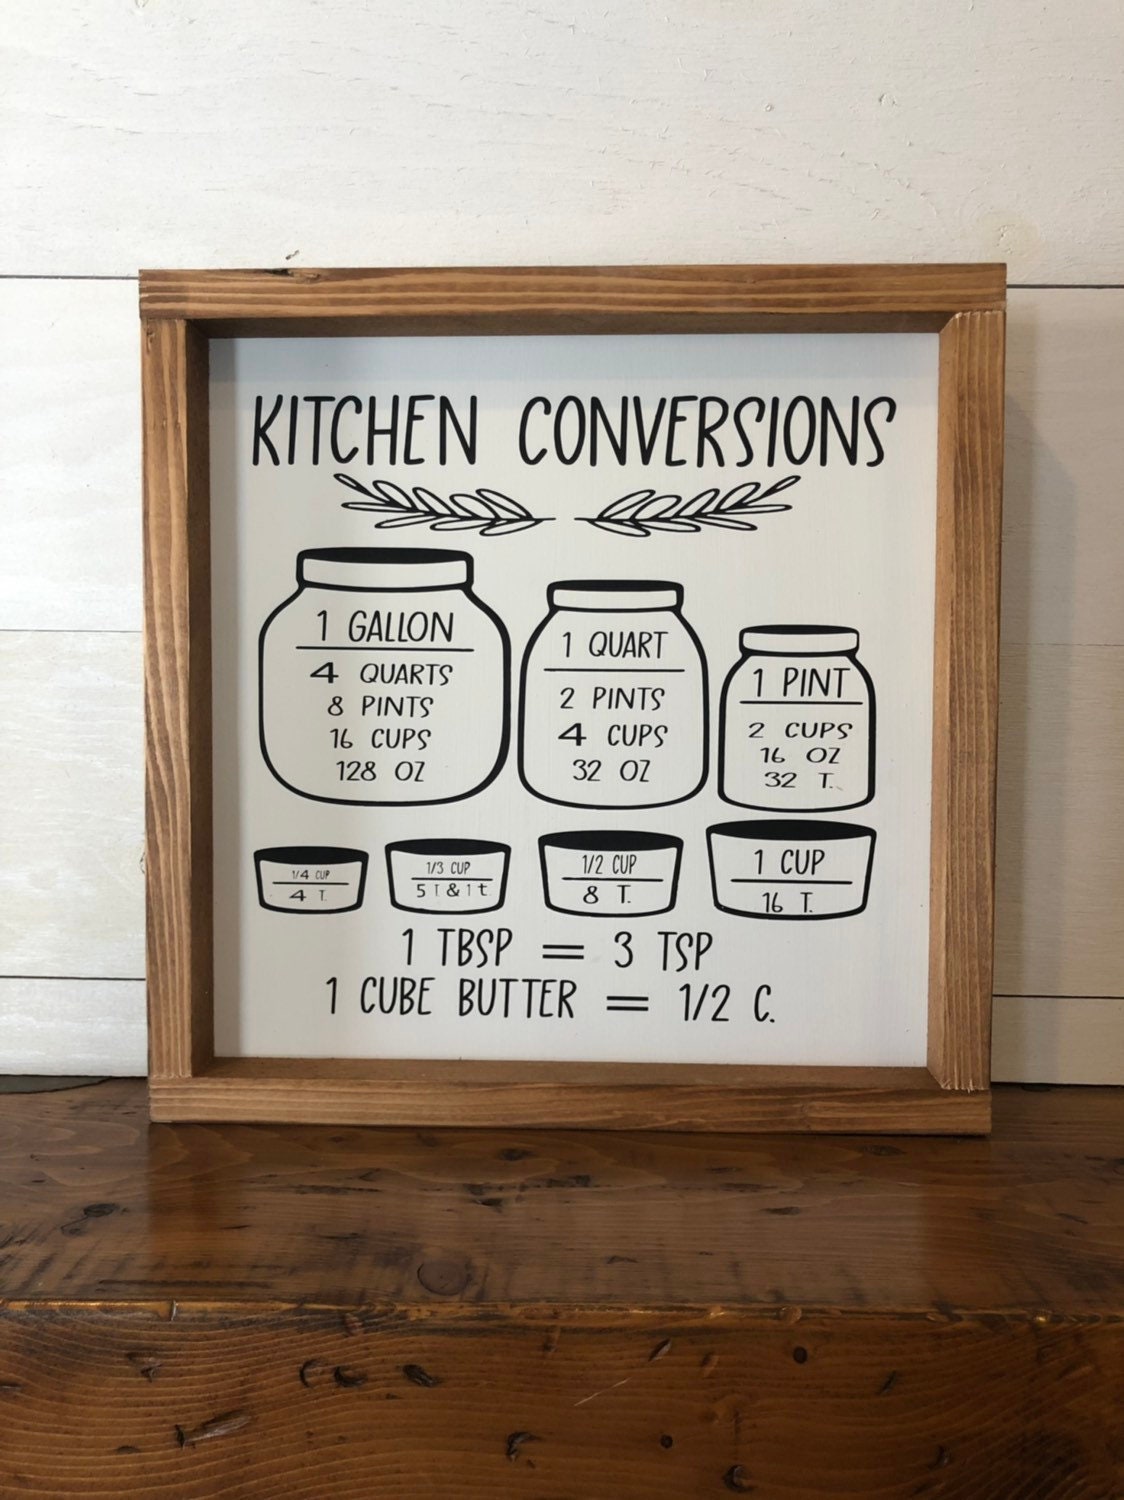 KITCHEN CONVERSIONS
1 GALLON
4 QUARTS
8 PINTS
16 CUPS
128 OZ
1 QUART
2 PINTS
4 CUPS
32 OZ
1 PINT
2 CUPS
16 OZ
32 T.
1/4 CUP
4 T.
1/3 CUP
5 T & 1 t
1/2 CUP
8 T.
1 CUP
16 T.
1 TBSP = 3 TSP
1 CUBE BUTTER = 1/2 C.